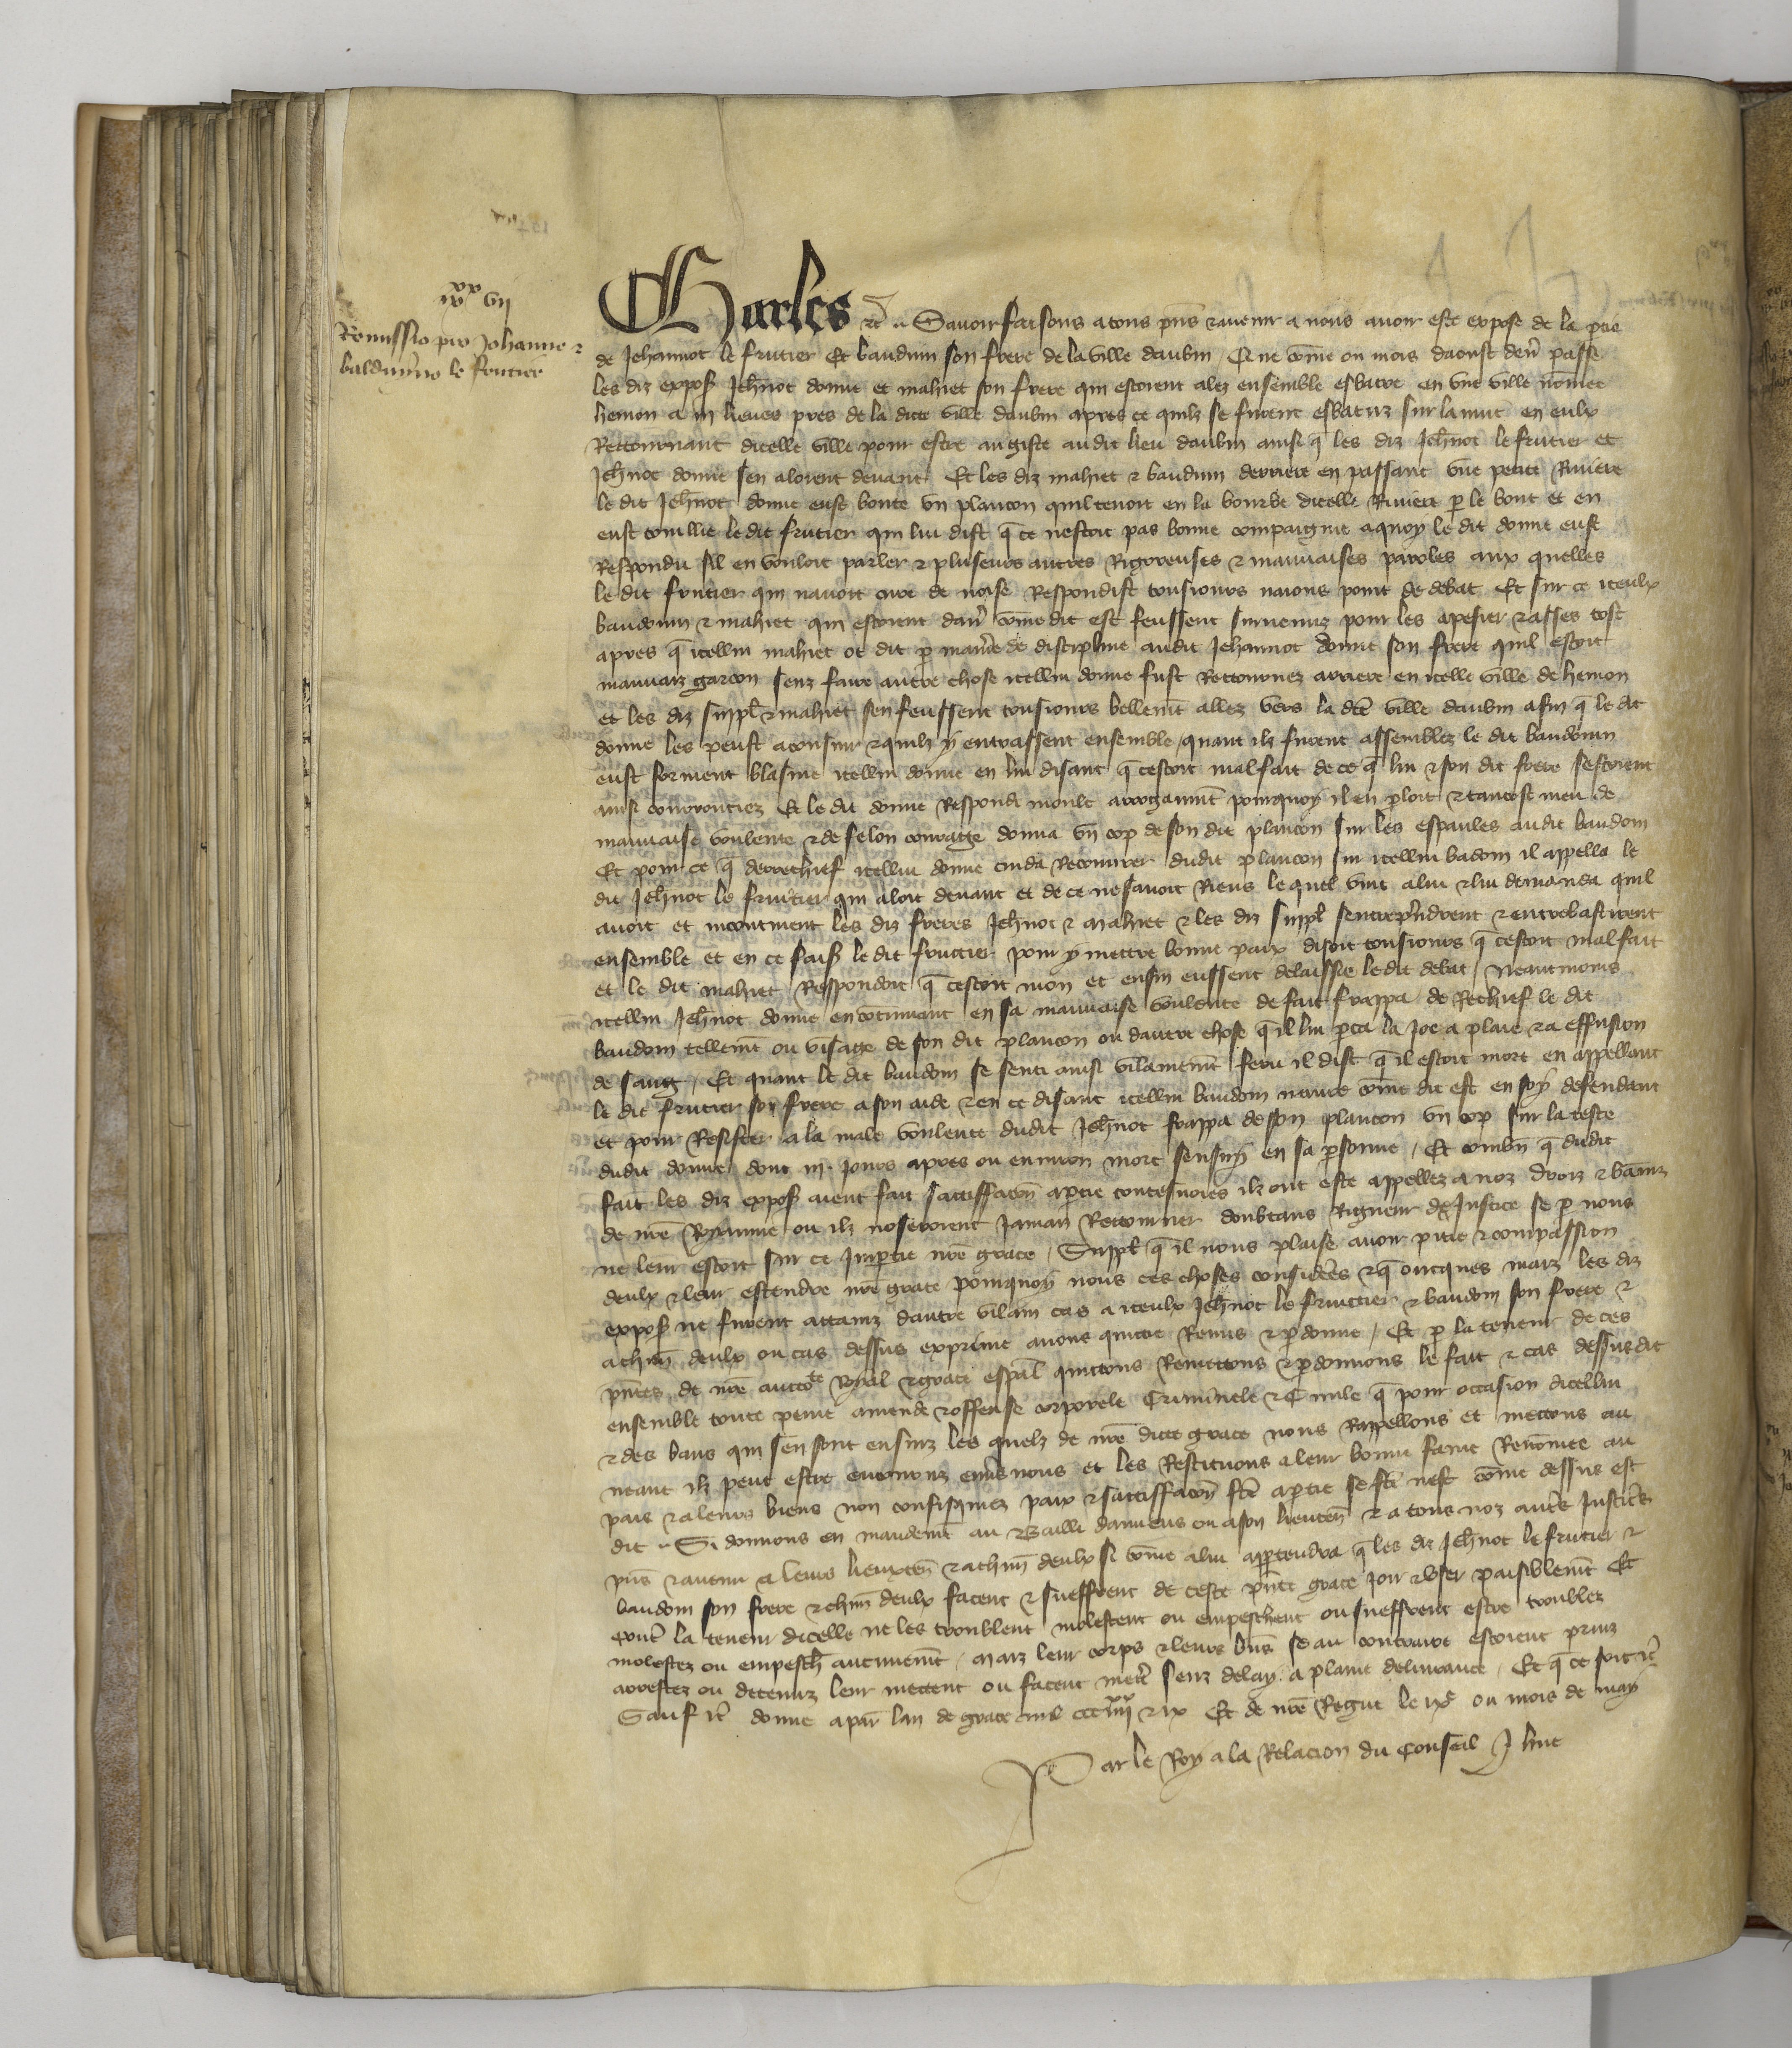 ix^xx vii
Remissio pro Johanne ⁊
balduyno le frutier
Charles ⁊c̃ .. Savoir faisons a tous p̃ns ⁊ avenir a nous avoir esté exposé de la ꝑtie
de Jehannot le frutier Et bauduin son frere de la ville daubin / Que cõme ou mois daoust deñ passé
les diz exposs̃ Jeh̃not donne et mahiet son frere qui estoient alez ensemble esbatre en une ville nõmee
hemon a iii lieues pres de la dicte ville daubin apres ce quilz se furent esbatuz sur la nuit en eulx
Retournant dicelle ville pour estre au giste au dit lieu daubin ainsi q̃ les diz Jeh̃not le frutier et
Jeh̃not donne sen aloient devant Et les diz mahiet ⁊ bauduin derriere en passant une petite Riviere
le dit Jeh̃not donne eust bouté un plancon quil tenoit en la bourbe dicelle Riviere ꝑ le bout et en
eust touillié le dit frutier qui lui dist q̃ ce nestoit pas bonne compaignie a quoy le dit donne eust
Respondu sil en vouloit parler ⁊ pluseurs autres Rigoreuses ⁊ mauvaises paroles aux quelles
le dit frutier qui navoit cure de noise Respondist tousiours naions point de debat Et sur ce iceulx
baudouin ⁊ mahiet qui estoient darr̃ cõme dit est feussent survenuz pour les apesier ⁊ asses tost
apres q̃ icellui mahiet ot dit ꝑ maniẽ de discipline audit Jehannot donne son frere quil estoit
mauvaiz garcon senz faire autre chose icellui donne fust Retournez arriere en icelle ville de hemon
et les diz suppl̃ ⁊ mahiet sen feussent tousiours bellemẽt allez vers la dc̃e ville daubin afin q̃ le dit
donne les peust aconsuir ⁊ quilz y entrassent ensemble / quant ilz furent assemblez le dit baudouin
eust forment blasmé icellui donne en lui disant q̃ cestoit mal fait de ce q̃ lui ⁊ son dit frere sestoient
ainsi courouciez Et le dit donne Respondi moult arrogaument pourquoy il en ꝑloit ⁊ tantost meu de
mauvaise voulenté ⁊ de felon couraige donna un cop de son dit plancon sur les espaules audit baudoin
Et pour ce q̃ derrechief icellui donne cuida Recouvrer dudit plancon sur icellui badoin il appella le
dit Jeh̃not le fruitier qui aloit devant et de ce ne savoit Riens le quel vint a lui ⁊ lui demanda quil
avoit et incontinent les diz freres Jeh̃not ⁊ Mahiet ⁊ les diz suppl̃ sentrep̃ndrent ⁊ entrebastirent
ensemble et en ce fais̃ le dit fruitier pour y mettre bonne paix disoit tousiours q̃ cestoit mal fait
et le dit mahiet Respondoit q̃ cestoit mon et ensin eussent delaissié le dit debat / Neantmoins
icellui Jeh̃not donne en cõtinuant en sa mauvaise voulenté de fait frappa de Rechief le dit
baudoin tellemẽt ou visage de son dit plancon ou dautre chose q̃ il lui ꝑca la Joe a plaie ⁊ a effusion
de sang / Et quant le dit baudoin se senti ainsi vilainemẽt feru il dist q̃ il estoit mort en appellant
le dit frutier son frere a son aide ⁊ en ce disant icellui baudoin navré cõme dit est en soy defendant
et pour Resister a la male voulenté dudit Jeh̃not frappa de son plancon un cop sur la teste
dudit donne dont iii Jours apres ou environ mort sensuy en sa ꝑsonne / Et combiẽ q̃ dudit
fait les diz exposs̃ aient fait sattisfacõn a ꝑtie contesvoies ilz ont esté appellez a noz droiz ⁊ baniz
de nr̃e Royaume ou ilz noseroient Jamaiz Retourner doubtans Rigueur de Justice se ꝑ nous
ne leur estoit sur ce Impartie nr̃e grace / Suppl̃ q̃ il nous plaise avoir pitié ⁊ compassion
deulx ⁊ leur estendre nr̃e grace pourquoy nous ces choses considerẽs ⁊ q̃ oncques maiz les diz
exposs̃ ne furent attains dautre vilain cas a iceulx Jeh̃not le fruitier ⁊ baudoin son frere ⁊
a chũn deulx ou cas dessus exprimé avons quitté Remis ⁊ ꝑdonné / Et ꝑ la teneur de ces
p̃ntes de nr̃e auctoᵗᵉ Royal ⁊ grace espãl quittons Remettons ⁊ ꝑdonnons le fait ⁊ cas dessusdit
ensemble toute peine amende ⁊ offense corporele Criminele ⁊ Civile q̃ pour occasion dicellui
⁊ des bans qui sen sont ensuiz les quelz de nr̃e dicte grace nous Rappellons et mettons au
neant ilz peut estre encouruz enṽs nous et les Restituons a leur bonne fame Renõmee au
pais ⁊ a leurs biens non confisquiez paix ⁊ sattisfacõn fc̃e a ꝑtie se fc̃e nest cõme dessus est
dit .. Si donnons en mandemẽt au Bailli damiens ou a son lieuteñ ⁊ a tous noz autr̃s Justic̃s
p̃ns ⁊ avenir a leurs lieuxteñ ⁊ a chũn deulx si cõme a lui aꝑtendra q̃ les diz Jeh̃not le frutier ⁊
baudoin son frere ⁊ chũn deulx facent ⁊ sueffrent de ceste p̃nte grace Joir ⁊ user paisiblemẽt Et
contr̃ la teneur dicelle ne les troublent molestent ou empeschent ou sueffrent estre troublez
molestez ou empesch̃ aucunemẽt / Maiz leur corps ⁊ leurs biẽs se au contraire estoient prinz
arrestez ou detenuz leur mettent ou facent mettr̃ senz delay a plaine delivrance / Et q̃ ce soit ⁊c̃
Sauf ⁊c̃ donné a parĩs lan de grace mil ccc iiii^xx ⁊ ix Et de nr̃e Regne le ixᵉ ou mois de may
Par le Roy a la Relacion du Conseil J hue